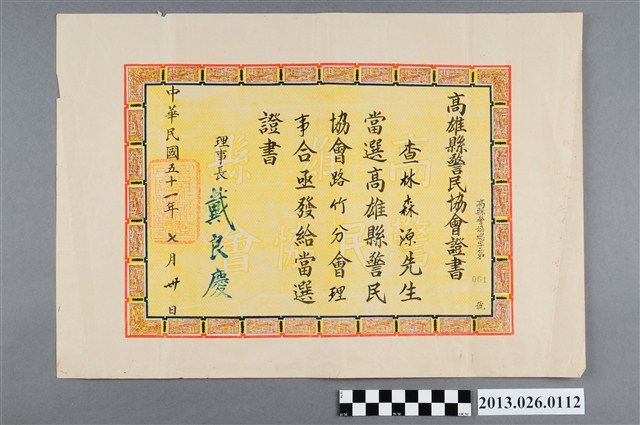 高雄縣警民協會證書
高縣警協總字第 061 號
查林森源先生
當選高雄縣警民
協會路竹分會理
事合亟發給當選
證書
理事長 戴良慶
中華民國五十一年 七月 卅日
2013.026.0112